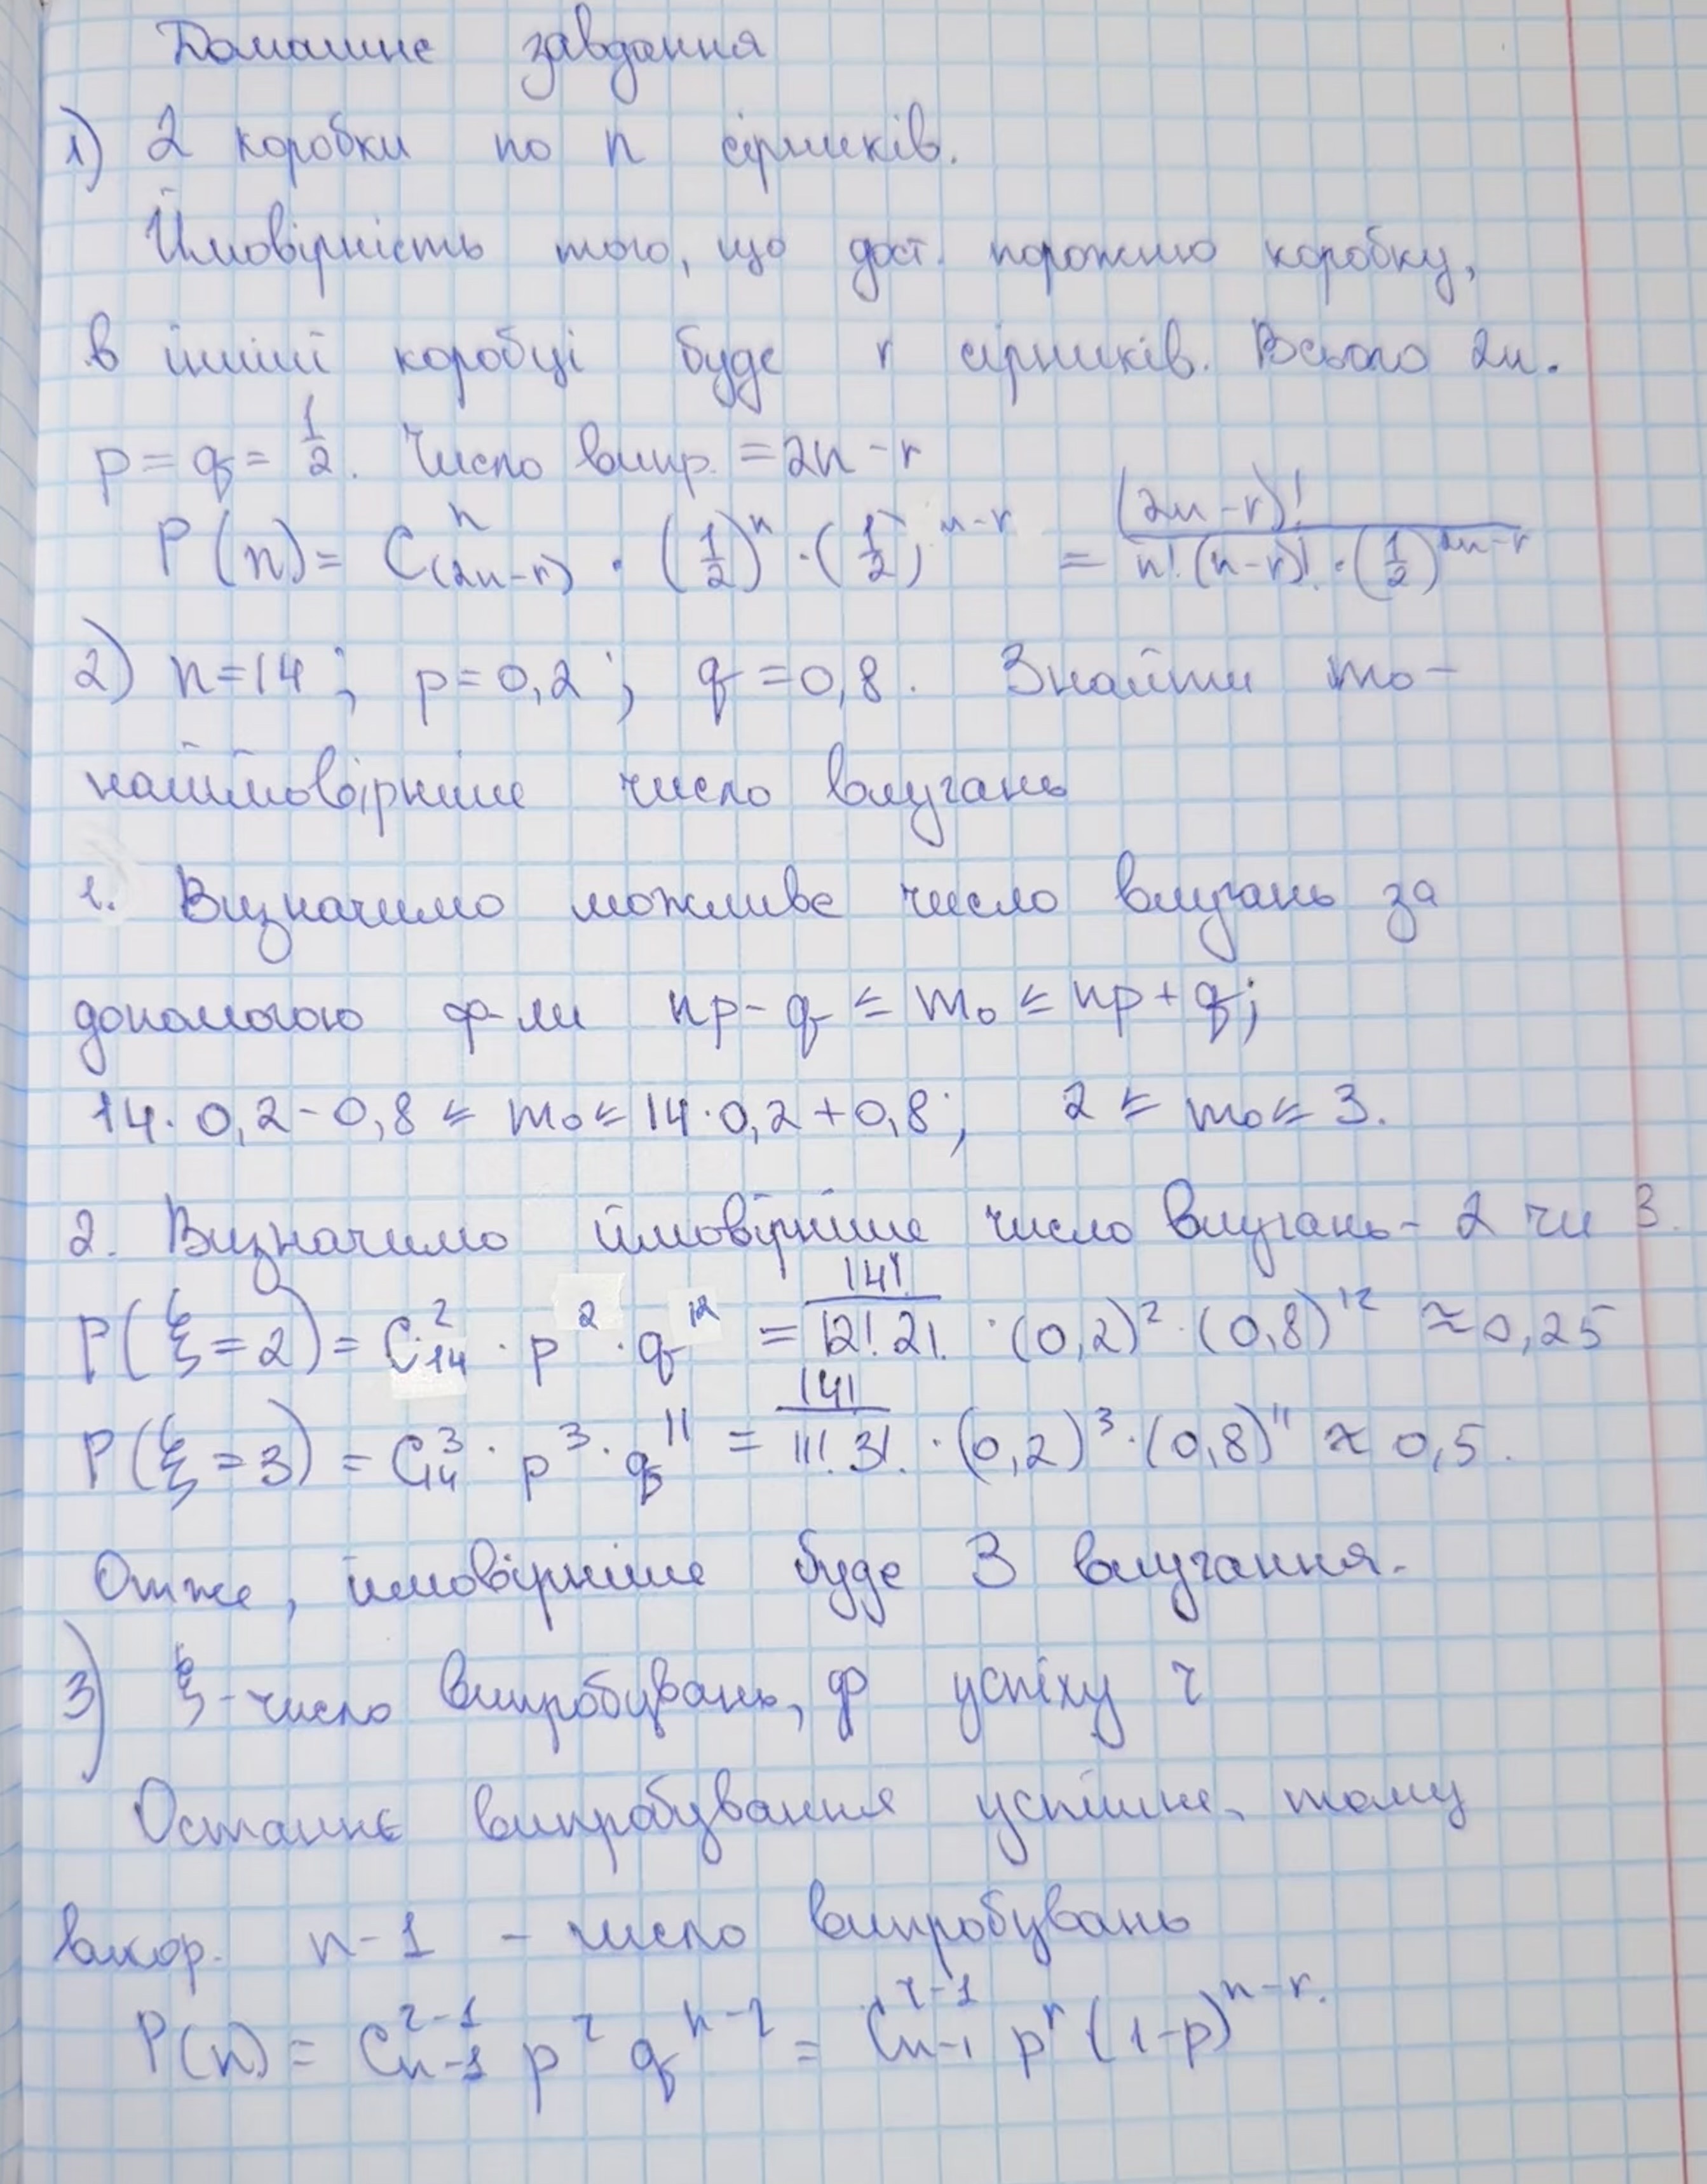 Домашнє завдання
1) 2 коробки по n сірників.
Ймовірність того, що дост. порожню коробку,
в іншій коробці буде r сірників. Всього 2n.
p = q = 1/2. Число випр. = 2n - r
P(n) = C^n_(2n-r) · (1/2)^n · (1/2)^n-r = (2n-r)! / n! (n-r)! · (1/2)^2n-r
2) n=14; p=0,2; q=0,8. Знайти mo-
найймовірніше число влучань
1. Визначимо можливе число влучань за
допомогою ф-ли np - q ≤ m₀ ≤ np + q;
14·0,2 - 0,8 ≤ m₀ ≤ 14·0,2 + 0,8; 2 ≤ m₀ ≤ 3.
2. Визначимо ймовірніше число влучань - 2 чи 3.
P(ξ=2) = C²₁₄ · p² · q¹² = 14! / 12! 2! · (0,2)² · (0,8)¹² ≈ 0,25
P(ξ=3) = C³₁₄ · p³ · q¹¹ = 14! / 11! 3! · (0,2)³ · (0,8)¹¹ ≈ 0,5.
Отже, ймовірніше буде 3 влучання.
3) ξ - число випробувань, ф успіху r
Останнє випробування успішне, тому
викор. n-1 - число випробувань
P(n) = C^r-1_n-1 p^r q^n-r = C^r-1_n-1 p^r (1-p)^n-r.